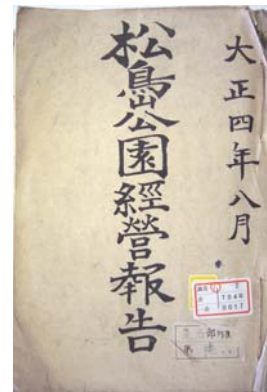 大正四年八月
松島公園經營報告